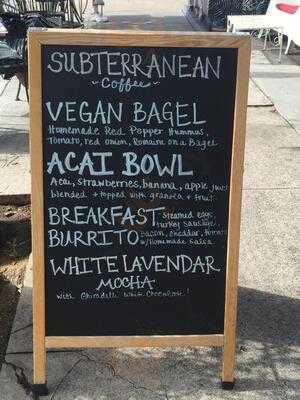 SUBTERRANEAN
~Coffee~
VEGAN BAGEL
Homemade Red Pepper Hummus,
Tomato, red onion, Romaine on a Bagel
ACAI BOWL
Acai, strawberries, banana, apple juice
blended + topped with granola + fruit
BREAKFAST steamed eggs,
turkey sausage,
BURRITO bacon, cheddar, tomato
w/Homemade salsa
WHITE LAVENDAR
MOCHA
with Ghiradelli White Chocolate!